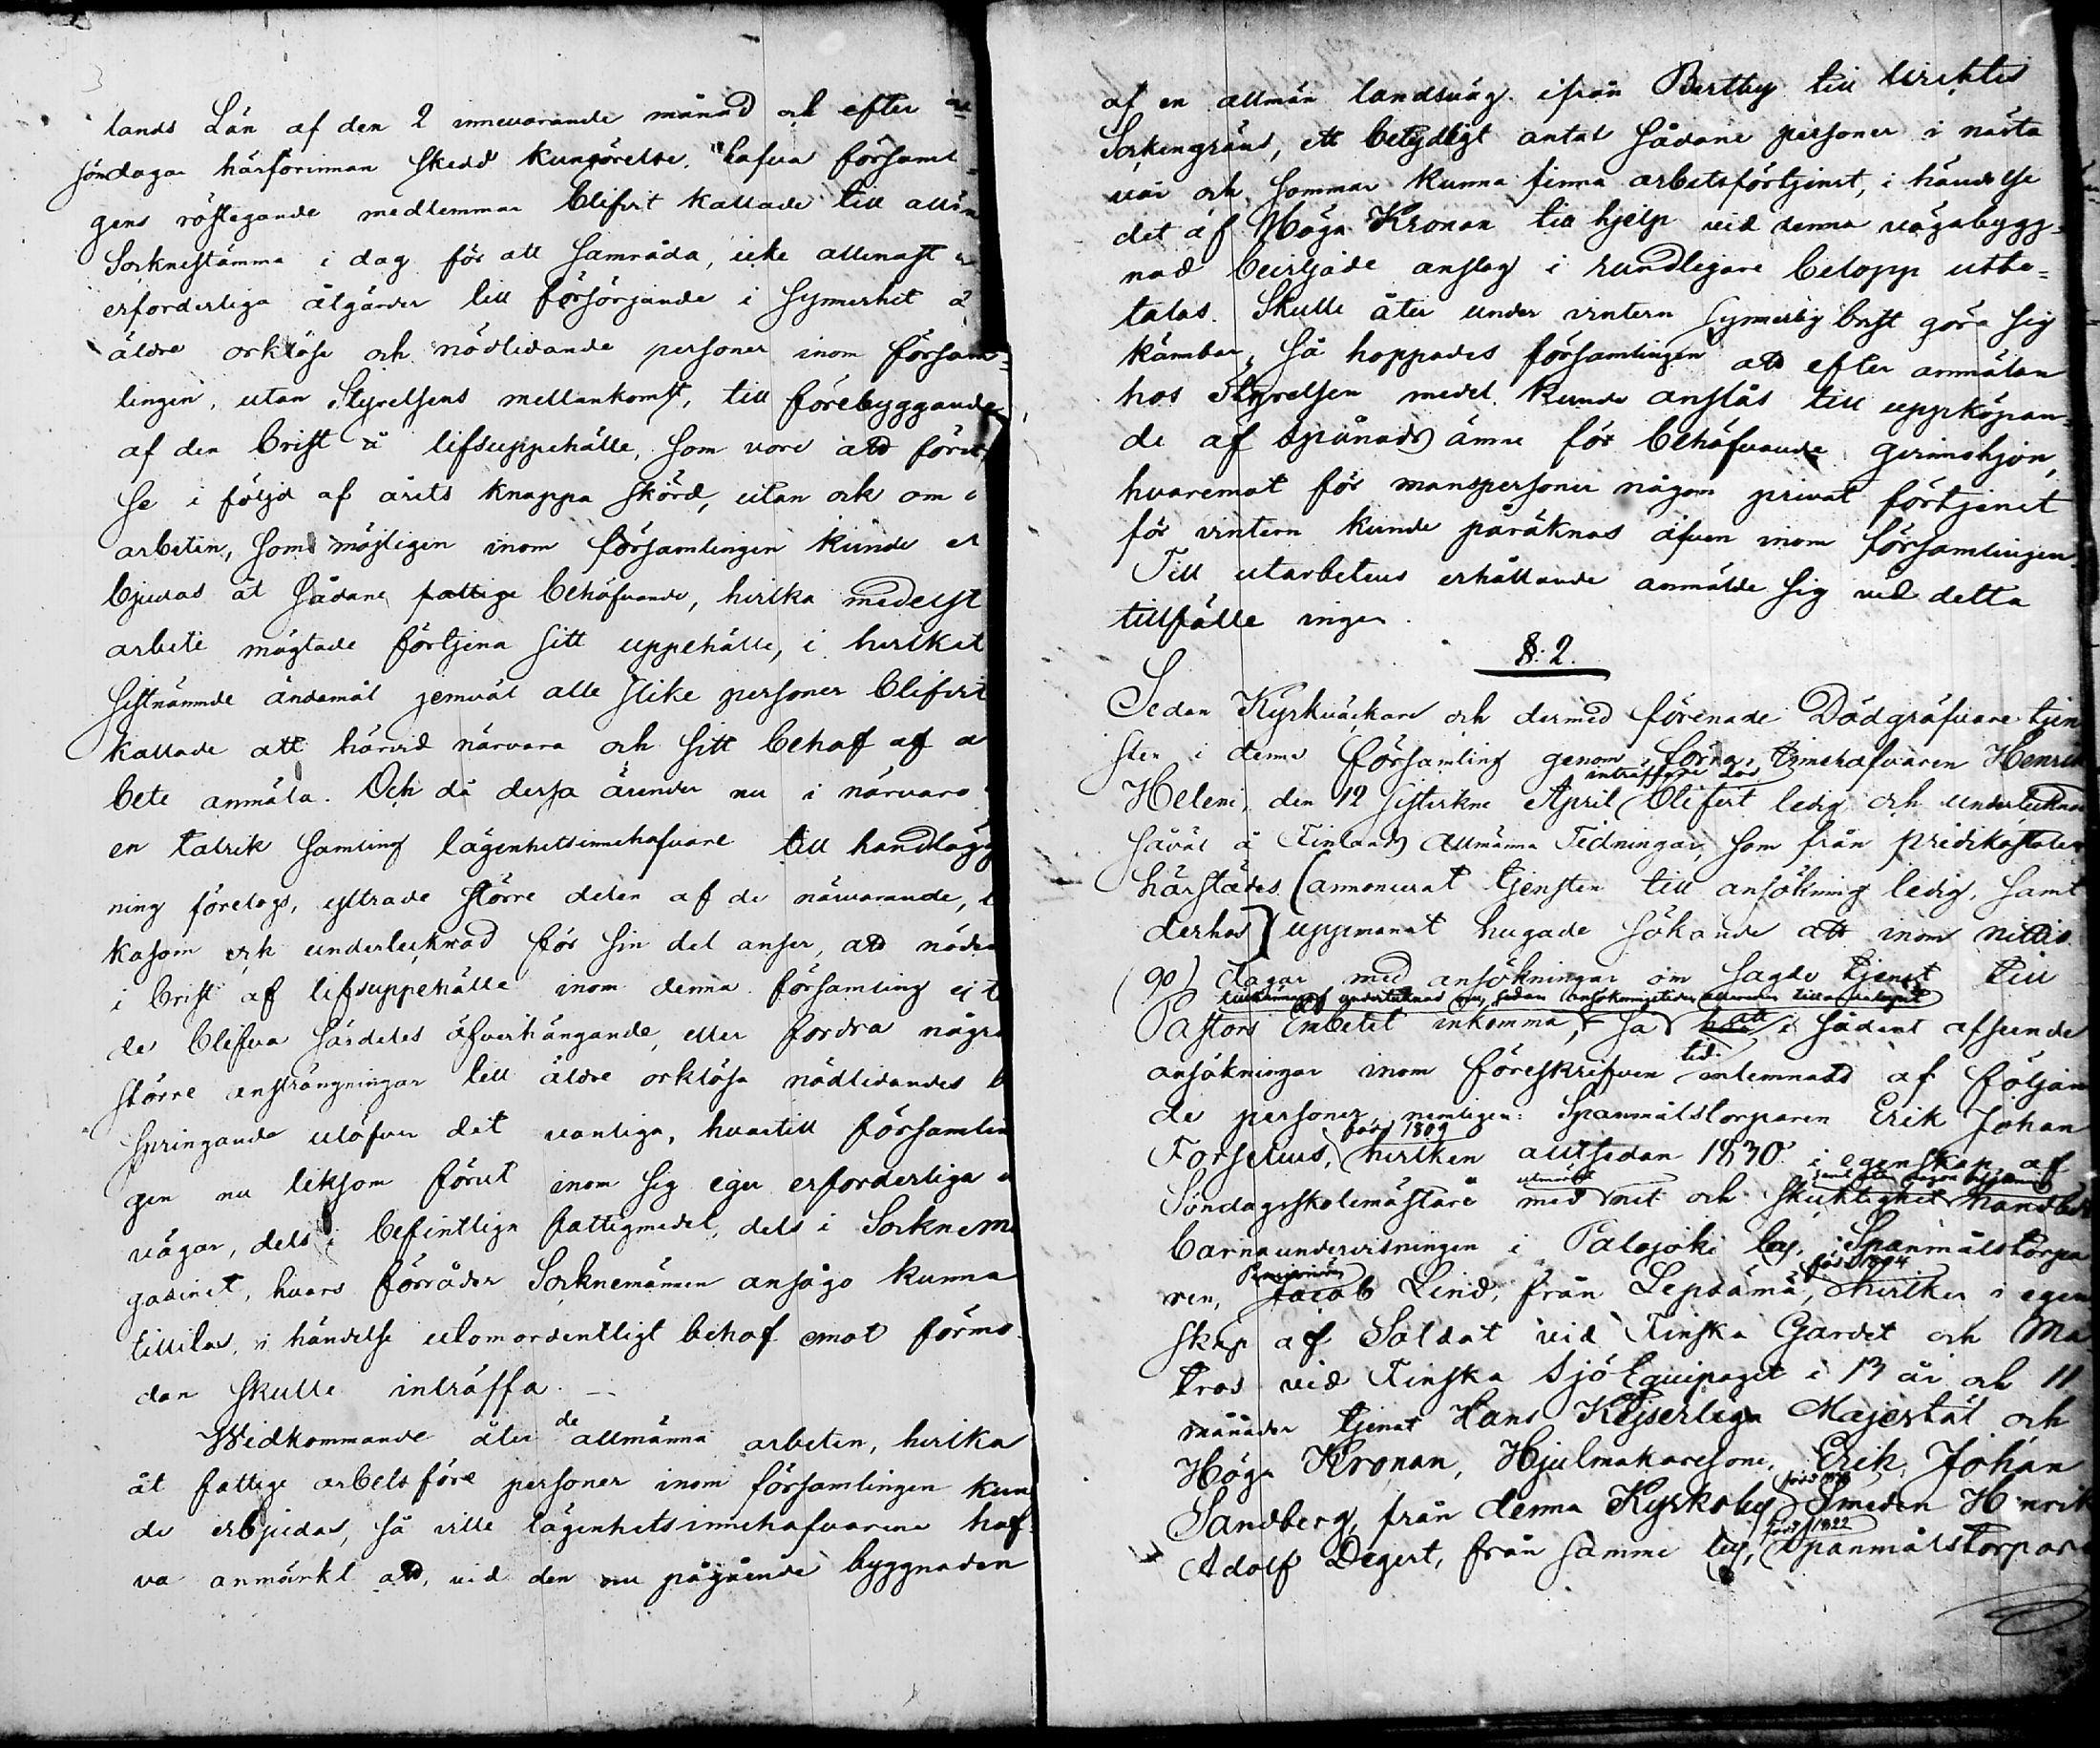 lands Län af den 2 innevarande månad och efter
söndagar härförinnan skedd kungörelse, hafva församl=
gens röstegande medlemmar blifvit kallade till allmän
Socknestämma i dag för att samråda, icke allenast
erforderliga åtgärder till försörjande i synnerhet
äldre orklöse och nödlidande personer inom försam=
lingen, utan Styrelsens mellankomst, till förebyggande
af den brist å lifsuppehälle, som vore att förut
se i följd af årets knappa skörd, utan ock om
arbeten, som möjligen inom församlingen kunde
bjudas åt sådane fattige behöfvande, hvilka medelst
arbete mägtade förtjena sitt uppehälle, i hvilket
sistnämnde ändamål jemväl alle slike personer blifvit
kallade att härvid närvara och sitt behof af
bete anmäla. Och då dessa ärender nu i närvaro
en talrik samling lägenhetsinnehafvare till handlägg
ning företogs, yttrade större delen af de närvarande,
kasom ock undertecknad för sin del anser, att nöden
i brist af lifsuppehälle inom denna församling ej
de blefve särdeles öfverhängande, eller fordra några
större ansträngningar till äldre orklösa nödlidandes
springande utöfver det vanliga, hvartill församlin
gen nu liksom förut inom sig eger erforderliga
vägar, dels i befintliga fattigmedel, dels i Socknem
gasinet, hvars förråder Socknemännen ansågo kunna
tillitas, i händelse utomordentligt behof emot förmo
dan skulle inträffa. —
Widkommande åter de allmänna arbeten, hvilka
åt fattige arbetsföre personer inom församlingen kun
de erbjudas, så ville lägenhetsinnehafvarene haf
va anmärkt att, vid den nu pågående byggnaden
af en allmän landsväg ifrån Bertby till
Sockengräns, ett betydligt antal sådane personer i nästa
vår och sommar kunna finna arbetsförtjenst, i händelse
det af Höga Kronan till hjelp vid denna vägabygg=
nad beviljade anslag i rundligare belopp utbe=
talas. Skulle åter under vintern synnerlig brist göra sig
kännbar, så hoppades församlingen att efter anmälan
hos Styrelsen medel kunde anslås till uppköpan=
de af spånads ämne för behöfvande qvinnohjon,
hvaremot för manspersoner någon privat förtjenst
för vintern kunde påräknas äfven inom församlingen.
Till utarbetens erhållande anmälde sig vid detta
tillfälle ingen.
§. 2.
Sedan Kyrkväckare och dermed förenade Dödgräfvare tjen
sten i denna församling genom förra innehafvaren Henrik
inträffade död
Heleni, den 12 sistvikne April blifvit ledig och undertecknad
såväl å Finlands Allmänna Tidningar, som från predikostolen
härstädes (annoncerat tjensten till ansökning ledig, samt
derhos) uppmanat hugade sökande att inom nittio
(90) dagar med ansökningar om sagde tjenst till
undertecknad nu, sedan ansökningstiden tilländalupit
Pastors Embetet inkomma, så att i sådant afseende
tid
ansökningar inom föreskrifven inlemnats af följan
de personer, nemligen: Spanmålstorparen Erik Johan
född 1809
Forselius, hvilken alltsedan 1830 i egenskap af
utmärkt
Söndagsskolemästare med nit och skicklighet handhaft
barnaundervisningen i Palojoki by, Spanmålstorpa
född 1804
ren, Jacob Lind, från Lepsämä, hvilken i egen
skap af Soldat vid Finska Gardet och Ma
tros vid Finska Sjö Equipaget i 13 år och 11
månader tjenat Hans Kejserliga Majestät och
Höga Kronan, Hjulmakaresone, Erik Johan
Sandberg, från denna Kyrkoby, Smeden Henrik
född 1822
Adolf Degert, från samma by, Spanmålstorpare